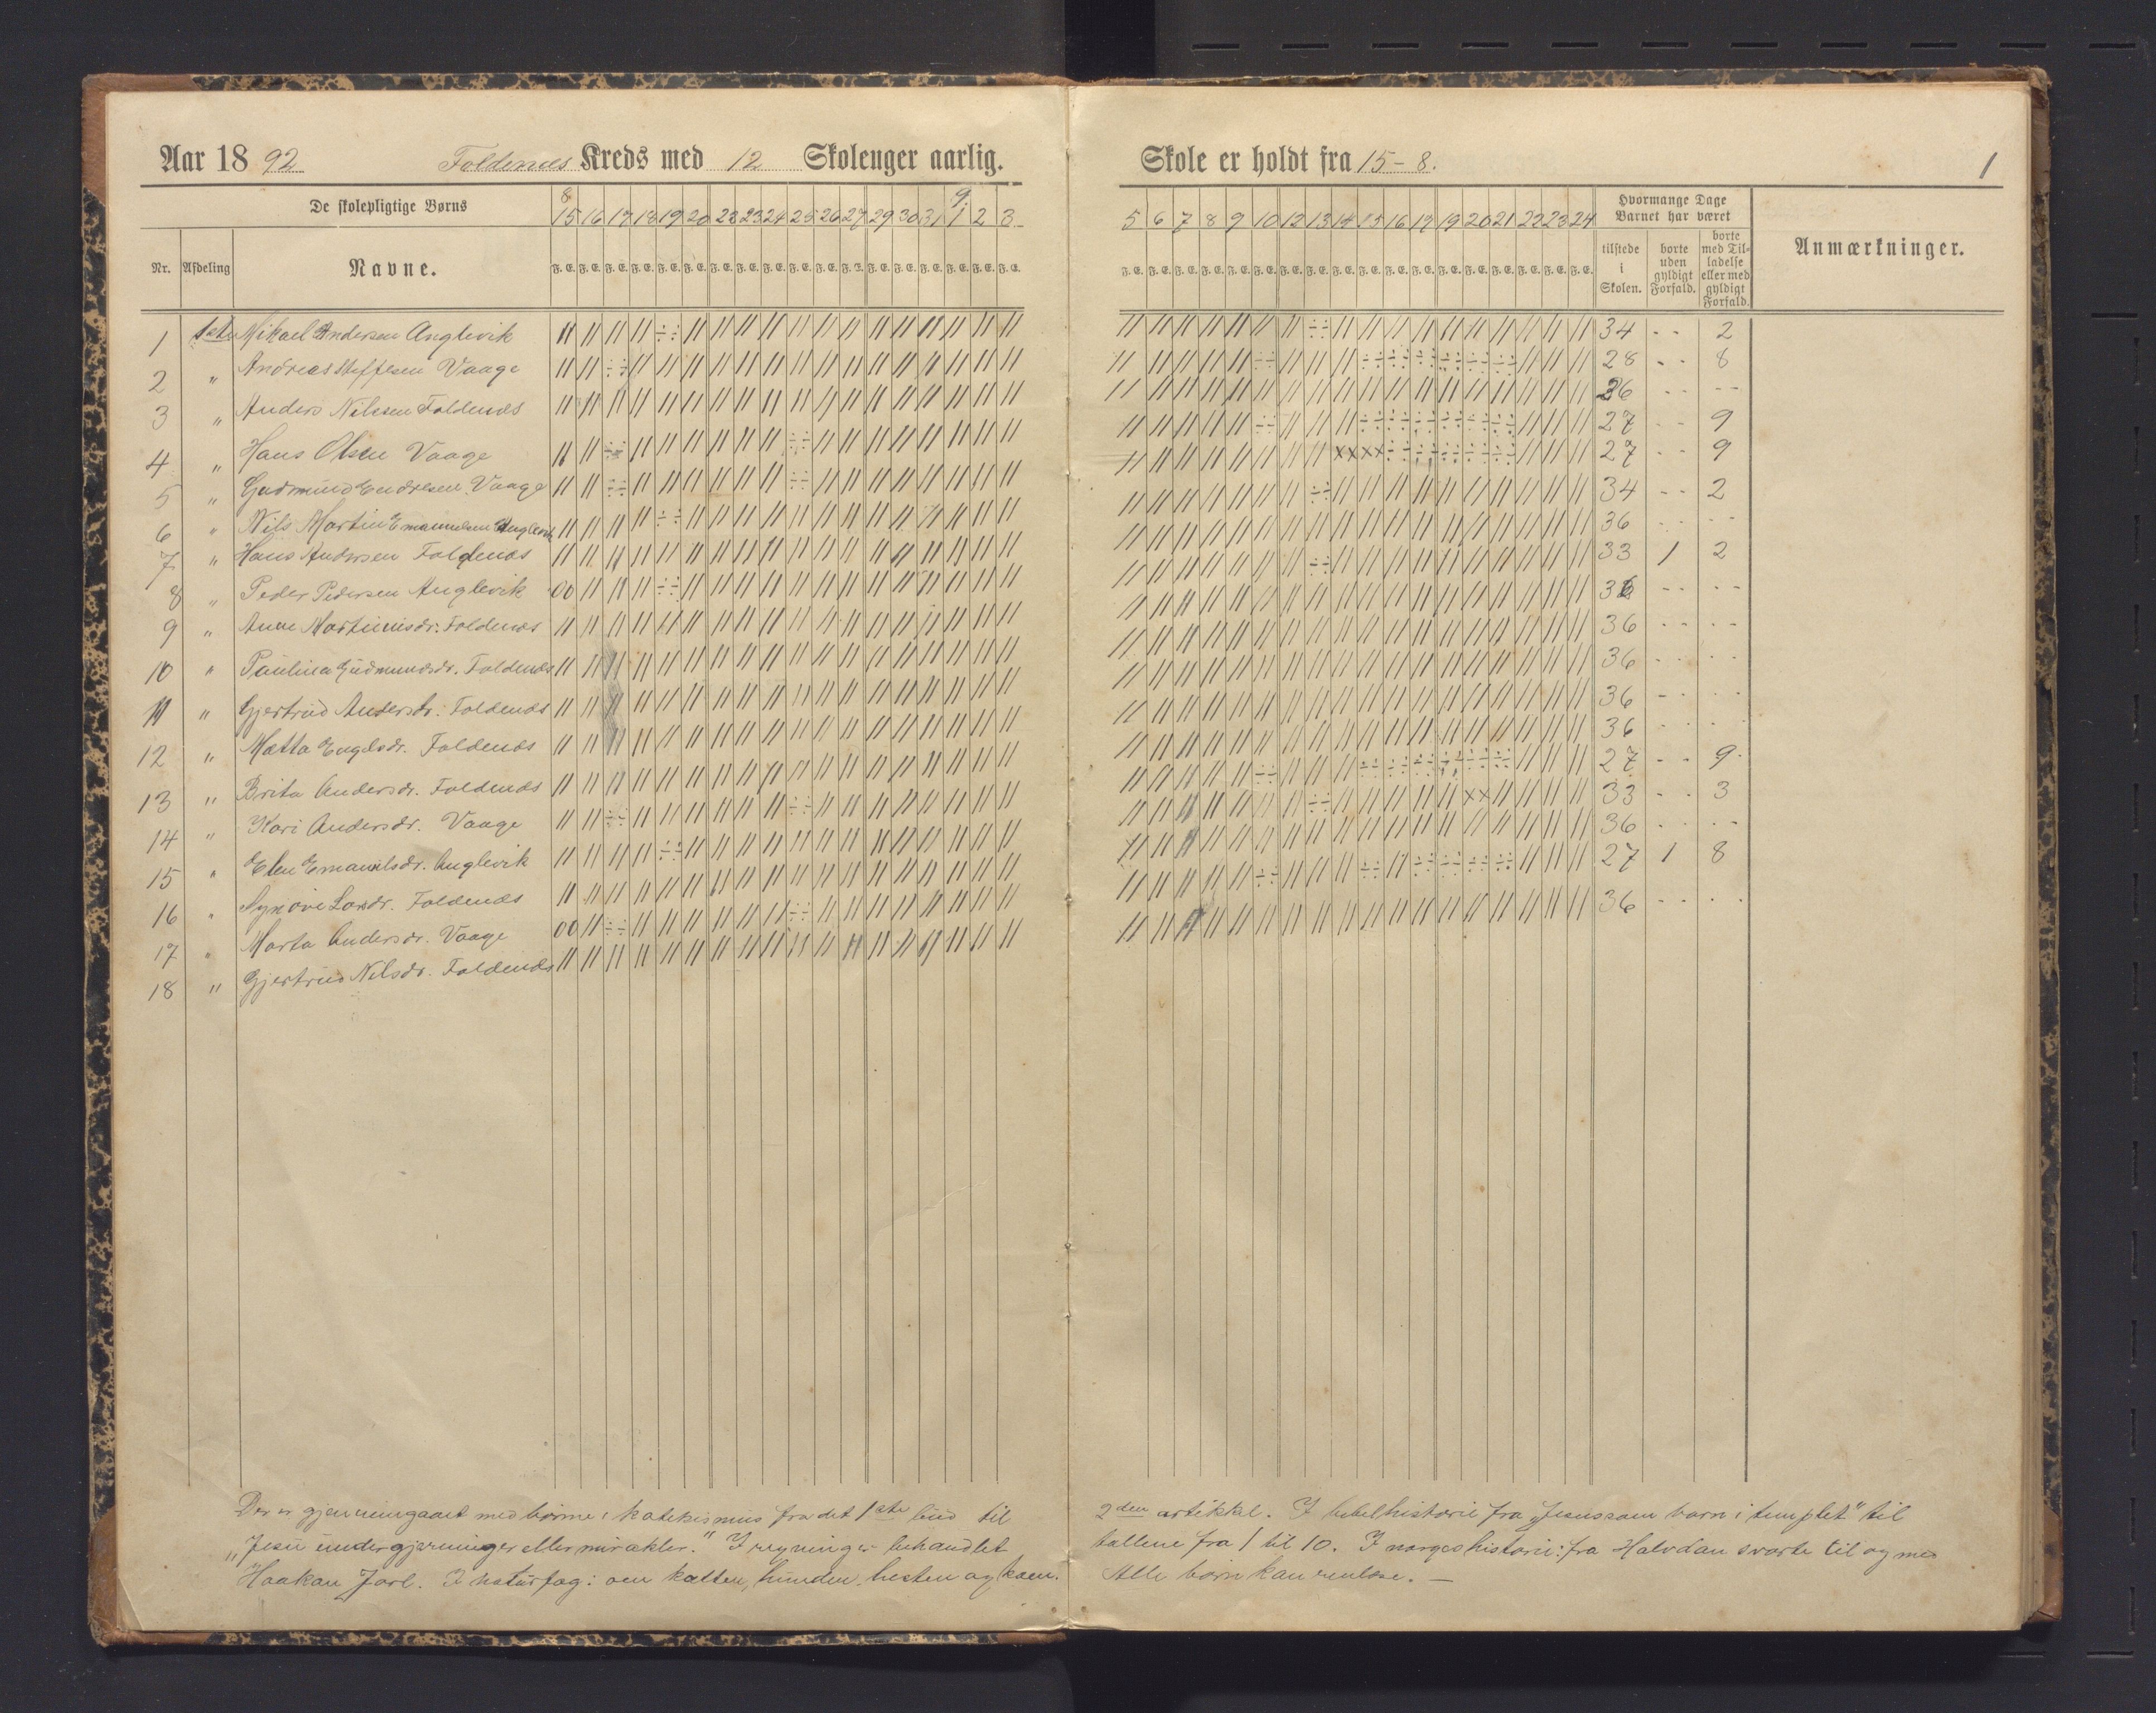 Aar 18 92 Foldenæs Kreds med 12 Skoleuger aarlig.
De skolepligtige Børns
8 9
15 16 17 18 19 20 22 23 24 25 26 27 29 30 31 1 2 3
Nr. Afdeling Navne. F. E. F. E. F. E. F. E. F. E. F. E. F. E. F. E. F. E. F. E. F. E. F. E. F. E. F. E. F. E. F. E. F. E. F. E.
1 1ste Mikael Andersen Anglevik
2 " Andreas Steffesen Vaage
3 " Anders Nilssen Foldenæs
4 " Hans Olsen Vaage
5 " Gudmund Endresen Vaage
6 " Nils Martin Emanuelsen Anglevik
7 " Hans Andersen Foldenæs
8 " Peder Pedersen Anglevik
9 " Anne Martinusdr. Foldenæs
10 " Paulina Gudmundsdr. Foldenæs
11 " Gjertrud Andersdr. Foldenæs
12 " Matta Engelsdr. Foldenæs
13 " Brita Andersdr. Foldenæs
14 " Kari Andersdr. Vaage
15 " Elen Emanuelsdr. Anglevik
16 " Synøve Larsdr. Foldenæs
17 " Marta Andersdr. Vaage
18 " Gjertrud Nilsdr. Foldenæs
Der er gjennemgaaet med børnene: katekismus fra det 1ste bud til
"Jesu undergjerninger eller mirakler." I regning er behandlet
Haakan Jarl. I naturfag: om katten, hunden, hesten og koen.
Skole er holdt fra 15 – 8. 1
5 6 7 8 9 10 12 13 14 15 16 17 19 20 21 22 23 24
Hvormange Dage
Barnet har været
F. E. F. E. F. E. F. E. F. E. F. E. F. E. F. E. F. E. F. E. F. E. F. E. F. E. F. E. F. E. F. E. F. E. F. E.
tilstede i Skolen.
borte uden gyldigt Forfald.
borte med Tilladelse eller med gyldigt Forfald.
Anmærkninger.
34 - - 2
28 - - 8
36 - - - -
27 - - 9
27 - - 9
34 - - 2
36 - - - -
33 1 2
36 - - - -
36 - - - -
36 - - - -
36 - - - -
36 - - - -
27 - - 9
33 - - 3
36 - - - -
27 1 8
36 - - - -
2den artikkel. I bibelhistorie fra "Jesus som barn i templet" til
tallene fra 1 til 10. I norgeshistorie: fra Halvdan svarte til og med
Alle børn kan renlæse. –